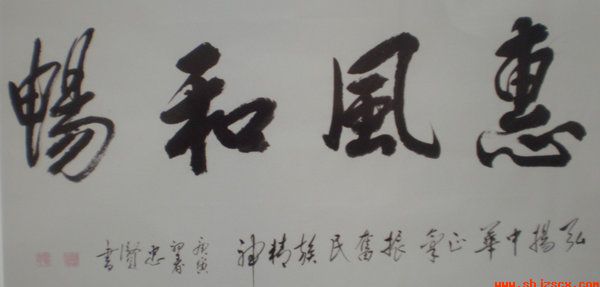 惠風和暢
弘揚中華正氣振奮民族精神
庚寅
忠
書
www.shjzscx.com